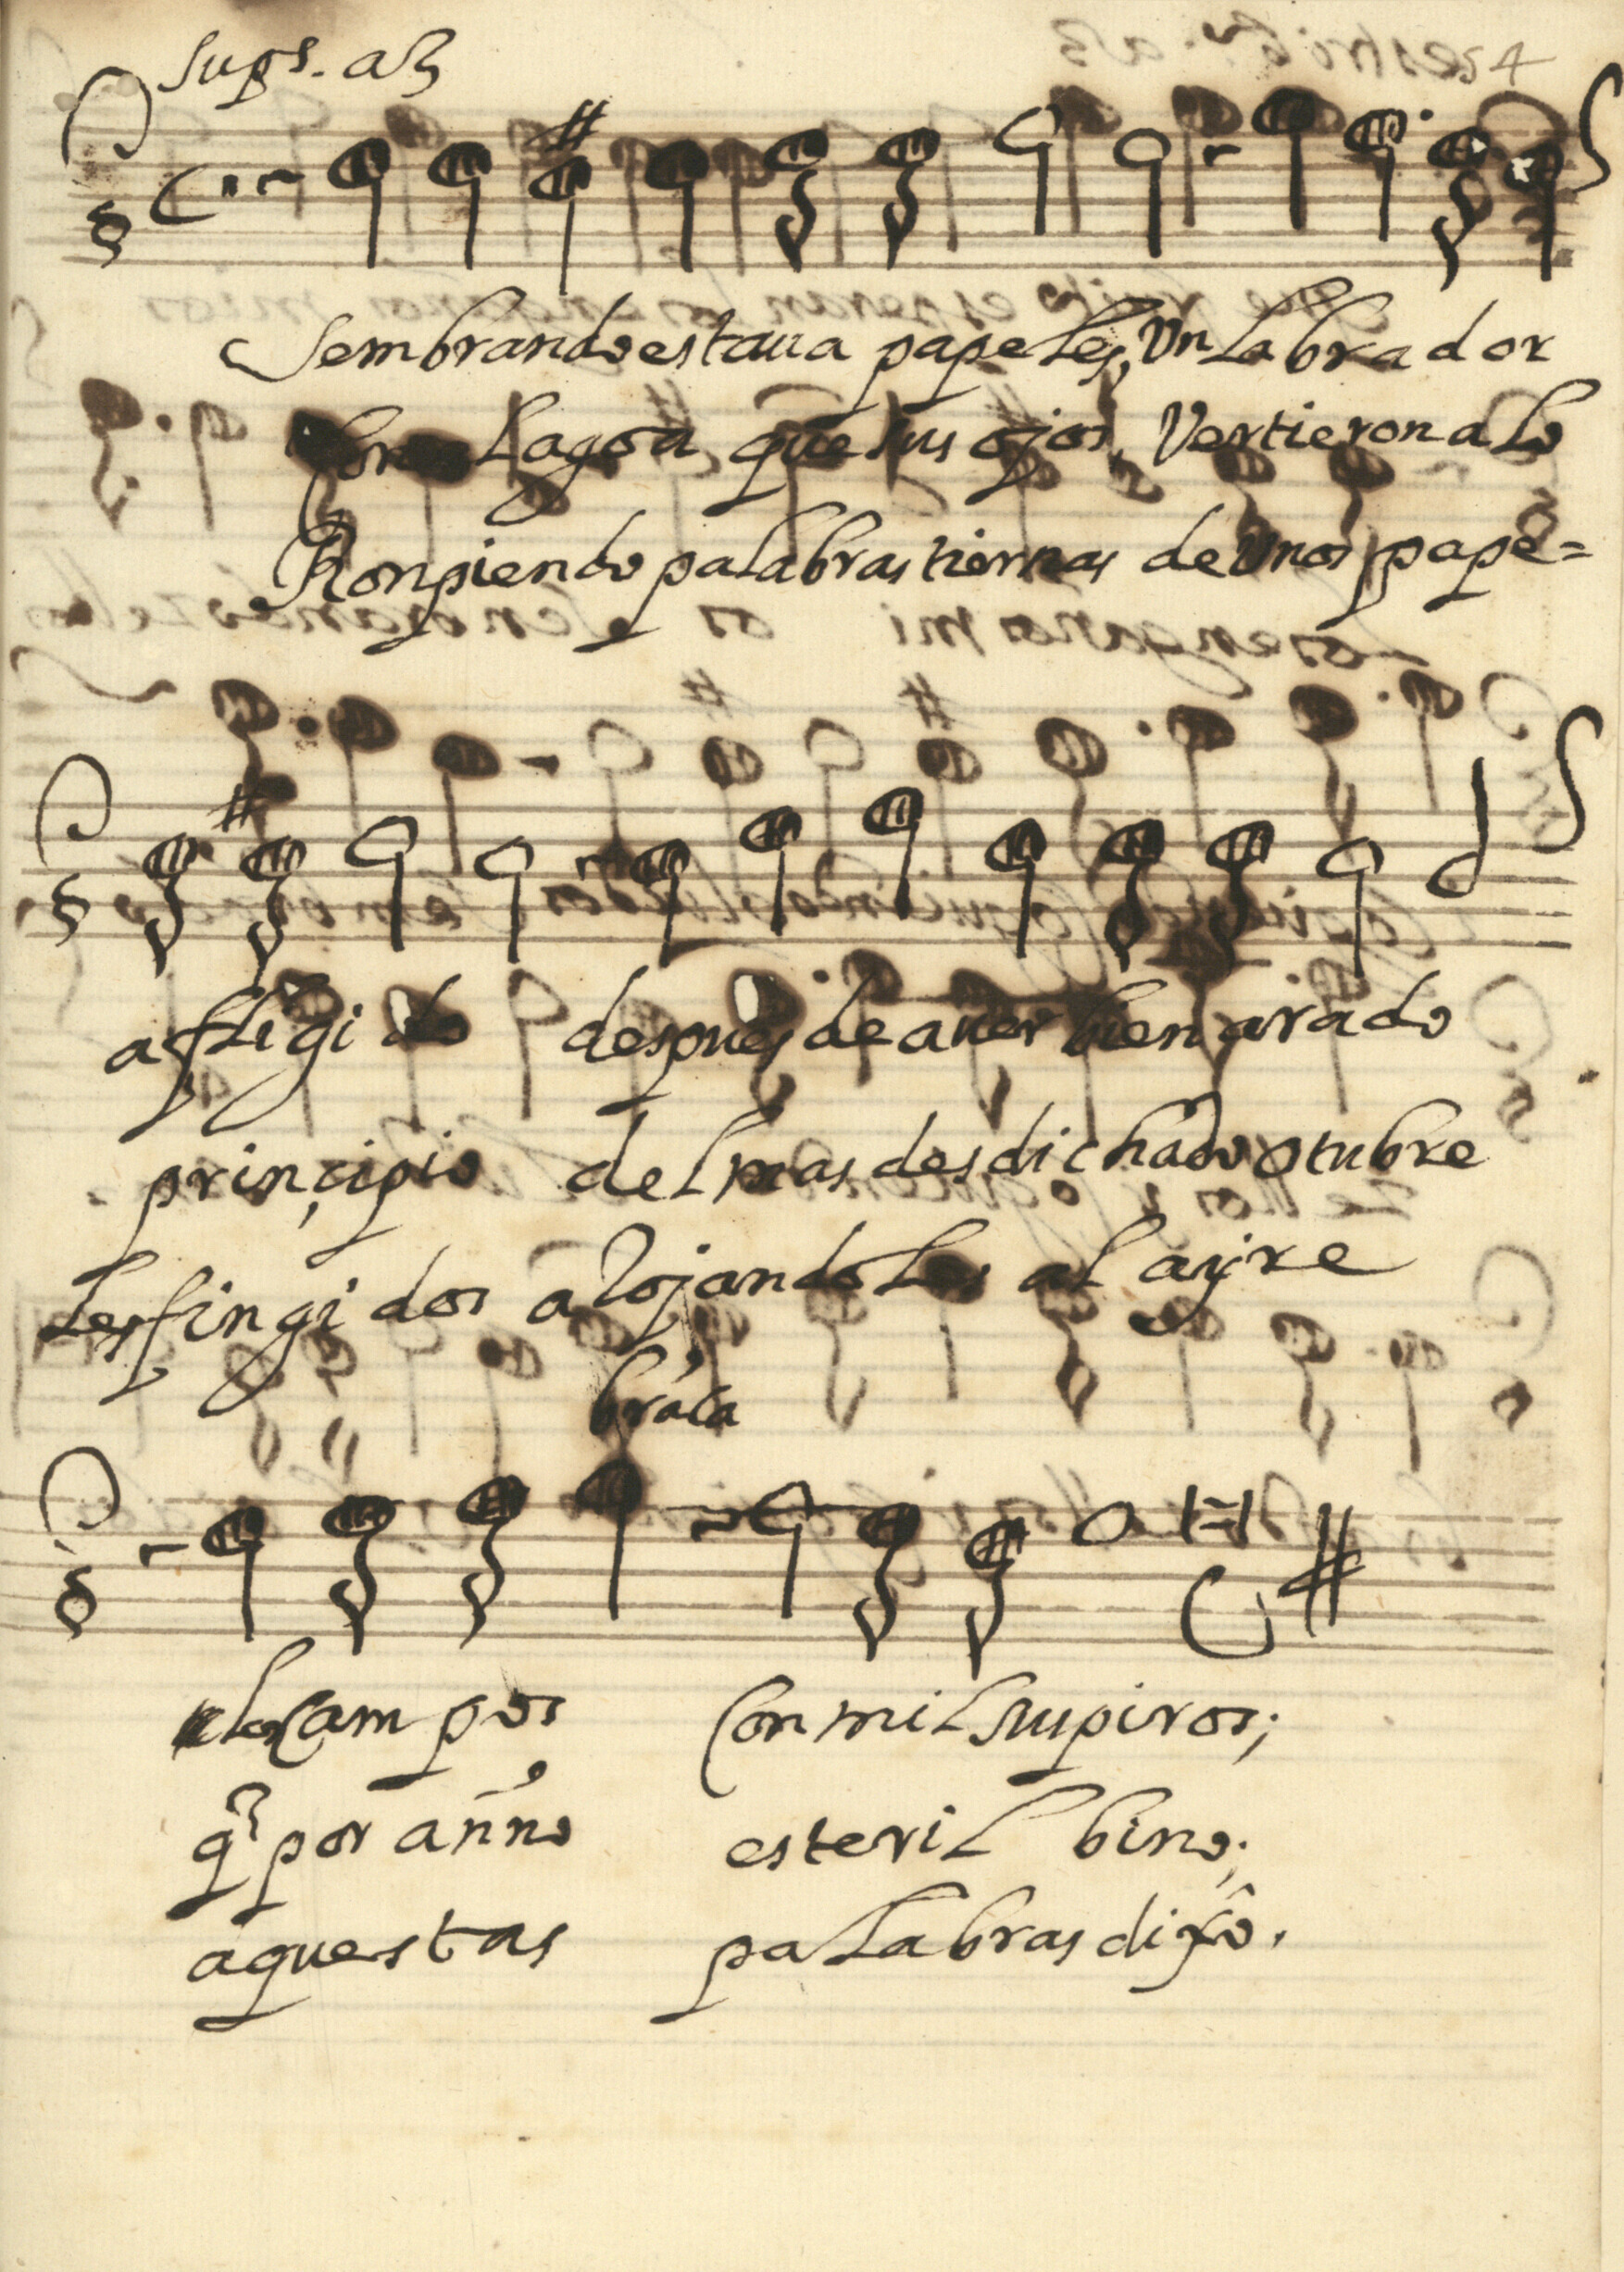 Sups. a3
4
Sembrando estaua papeles, Un labrador
lagoa que sus ojos, Vertieron a lo
Ronpiendo palabras tiernas de Unos pape=
afligido despues de auer bien arado
prinçipio del mas desdichado otubre
les fingidos alojandoles al ayre
los campos Con mil suspiros;
q por anno esteril bino;
aquestas palabras dixo.